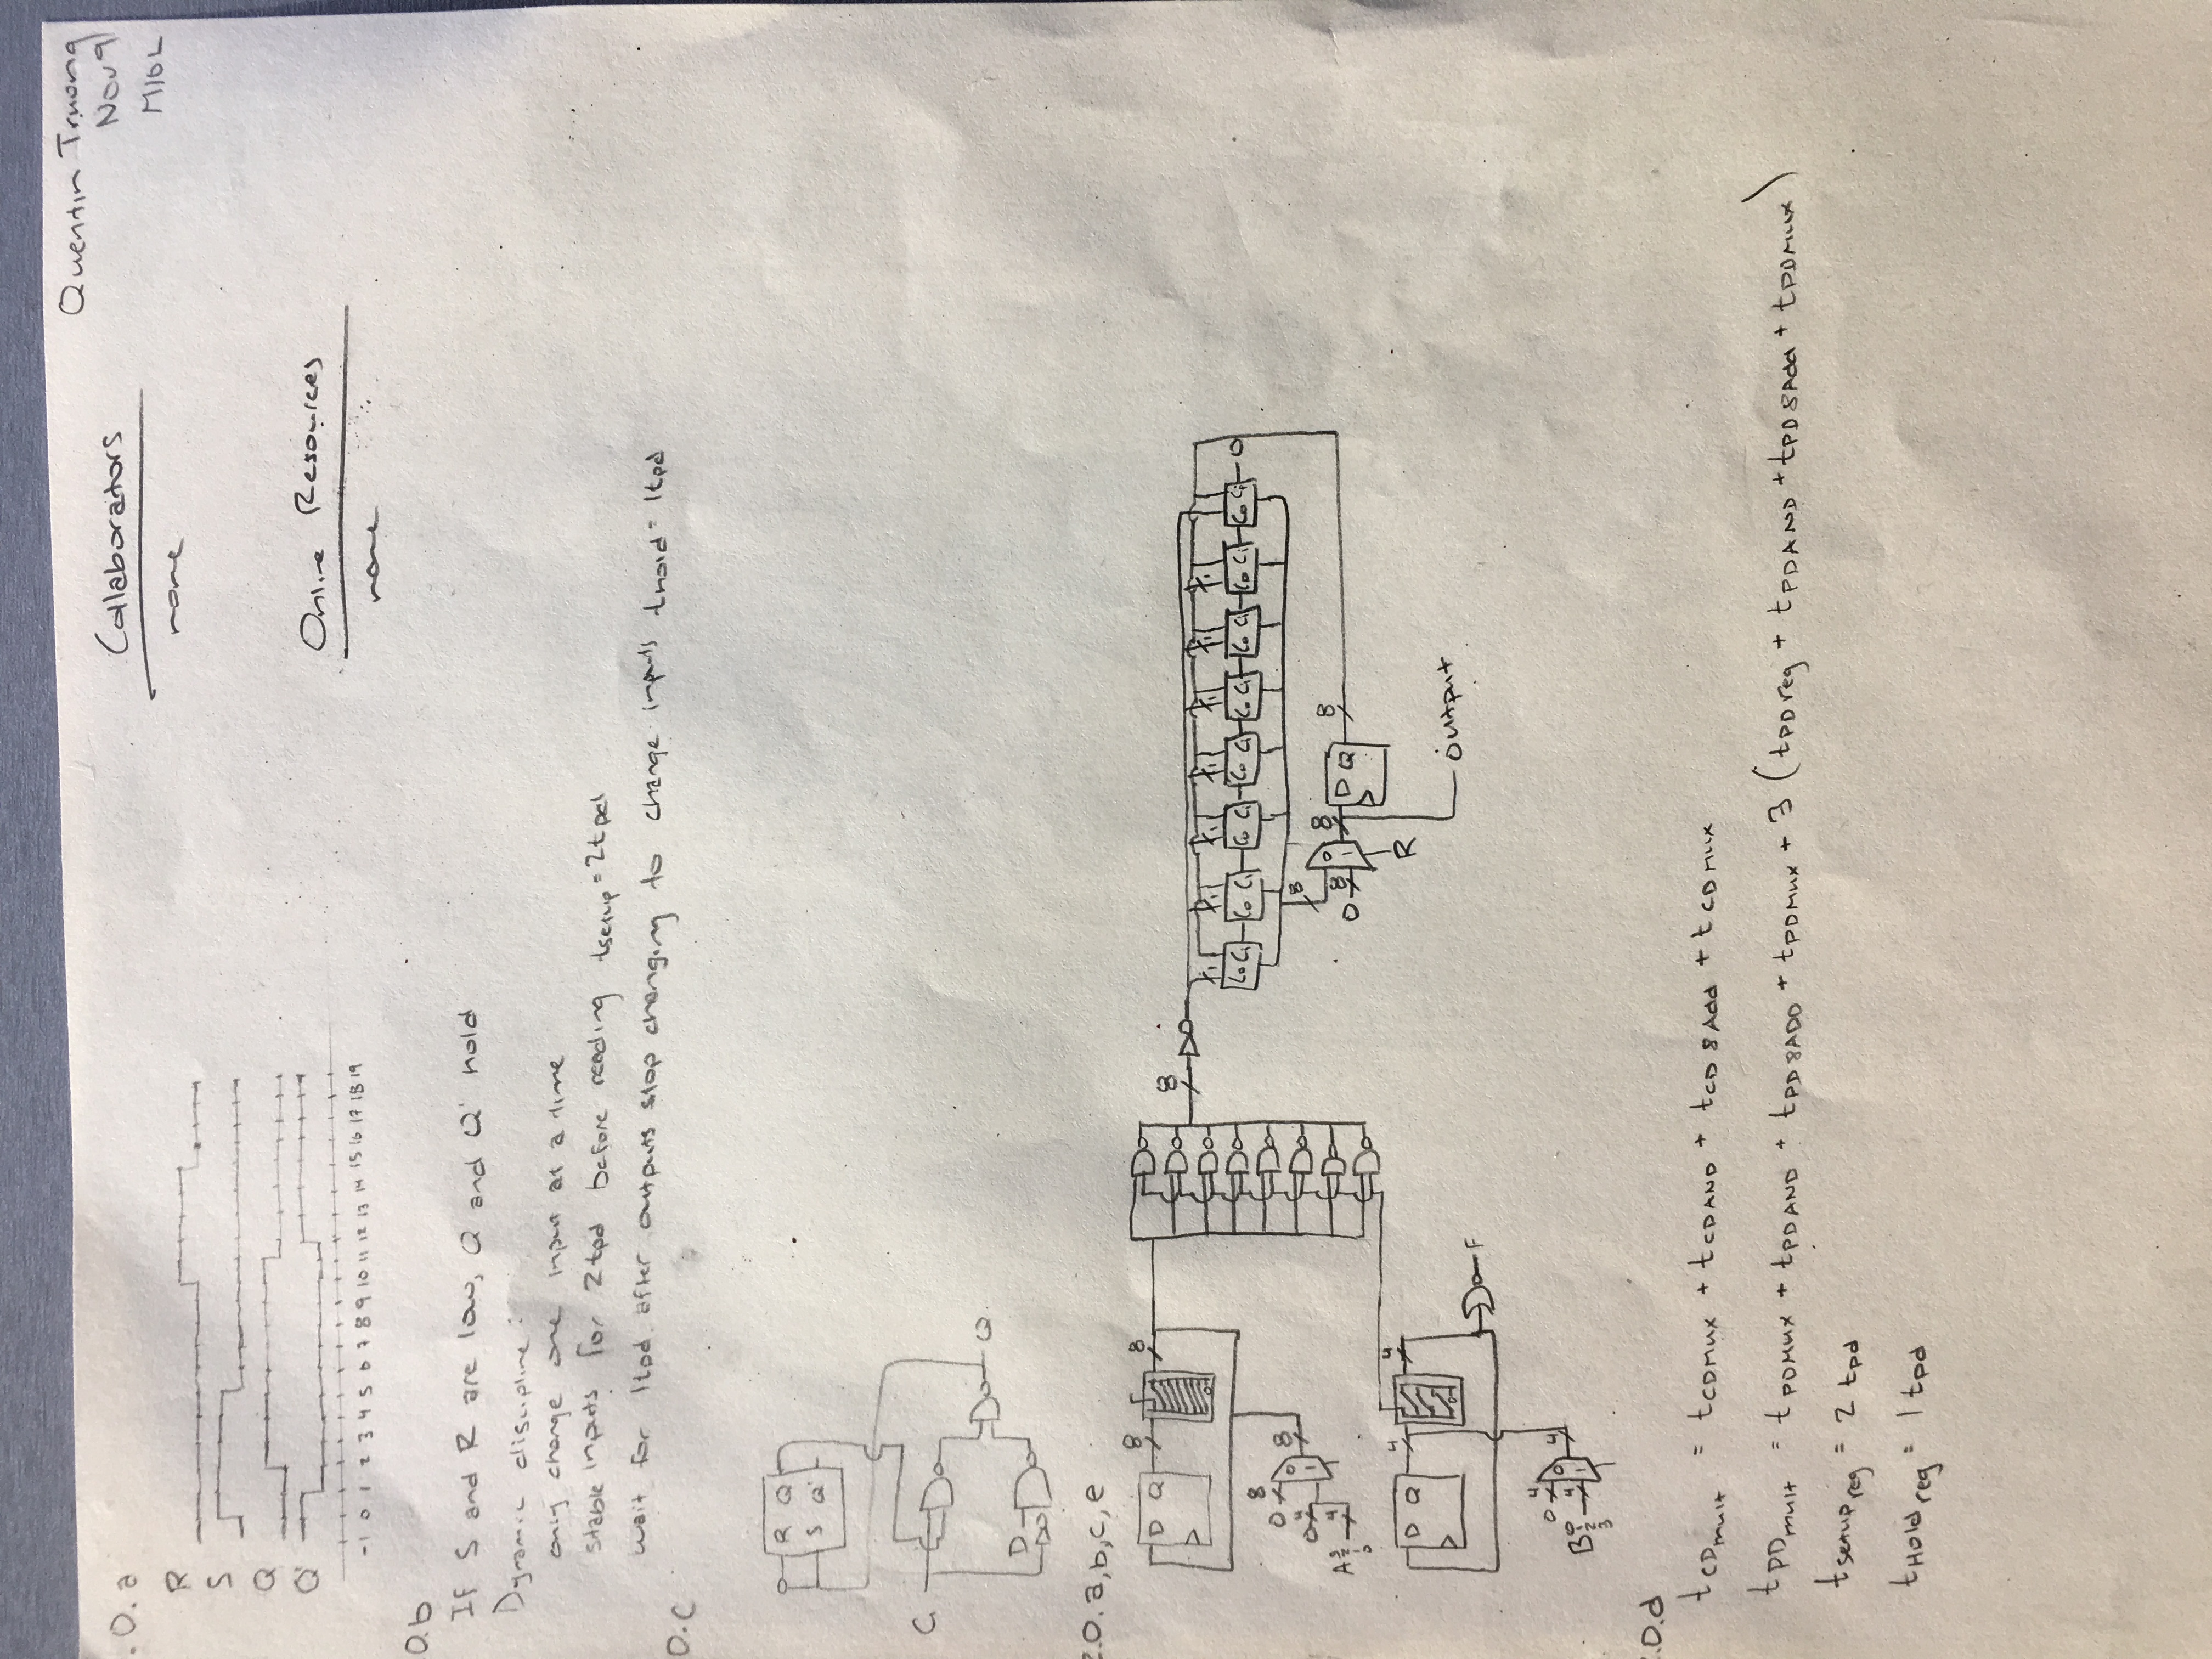 Quentin Truong
Nov 9
M16L
Collaborators
none
Online Resources
none
.0.a
R
S
Q
Q'
-1 0 1 2 3 4 5 6 7 8 9 10 11 12 13 14 15 16 17 18 19
0.b
If S and R are low, Q and Q' hold
Dynamic discipline:
only change one input at a time
stable inputs for 2tpd before reading tsetup = 2tpd
wait for 1tpd after outputs stop changing to change inputs thold = 1tpd
0.c
R Q
S Q'
G
Q
D
2.0.a,b,c,e
D Q 8 8
8
0 8
0 4
0
1
A 3 2 1 0 4
8
Co Ci Co Ci Co Ci Co Ci Co Ci Co Ci Co Ci Co Ci 0
8
0 8
0
1
8
D Q 8
R
output
D Q 4 4
F
0 4
0
1
4
B 0 1 2 3 4
.0.d
tCDmult = tCDMUX + tCDAND + tCD8Add + tCDMUX
tPDmult = tPDMUX + tPDAND + tPD8ADD + tPDMUX + 3 (tPDreg + tPDAND + tPD8Add + tPDMUX)
tsetupreg = 2 tpd
tHoldreg = 1 tpd